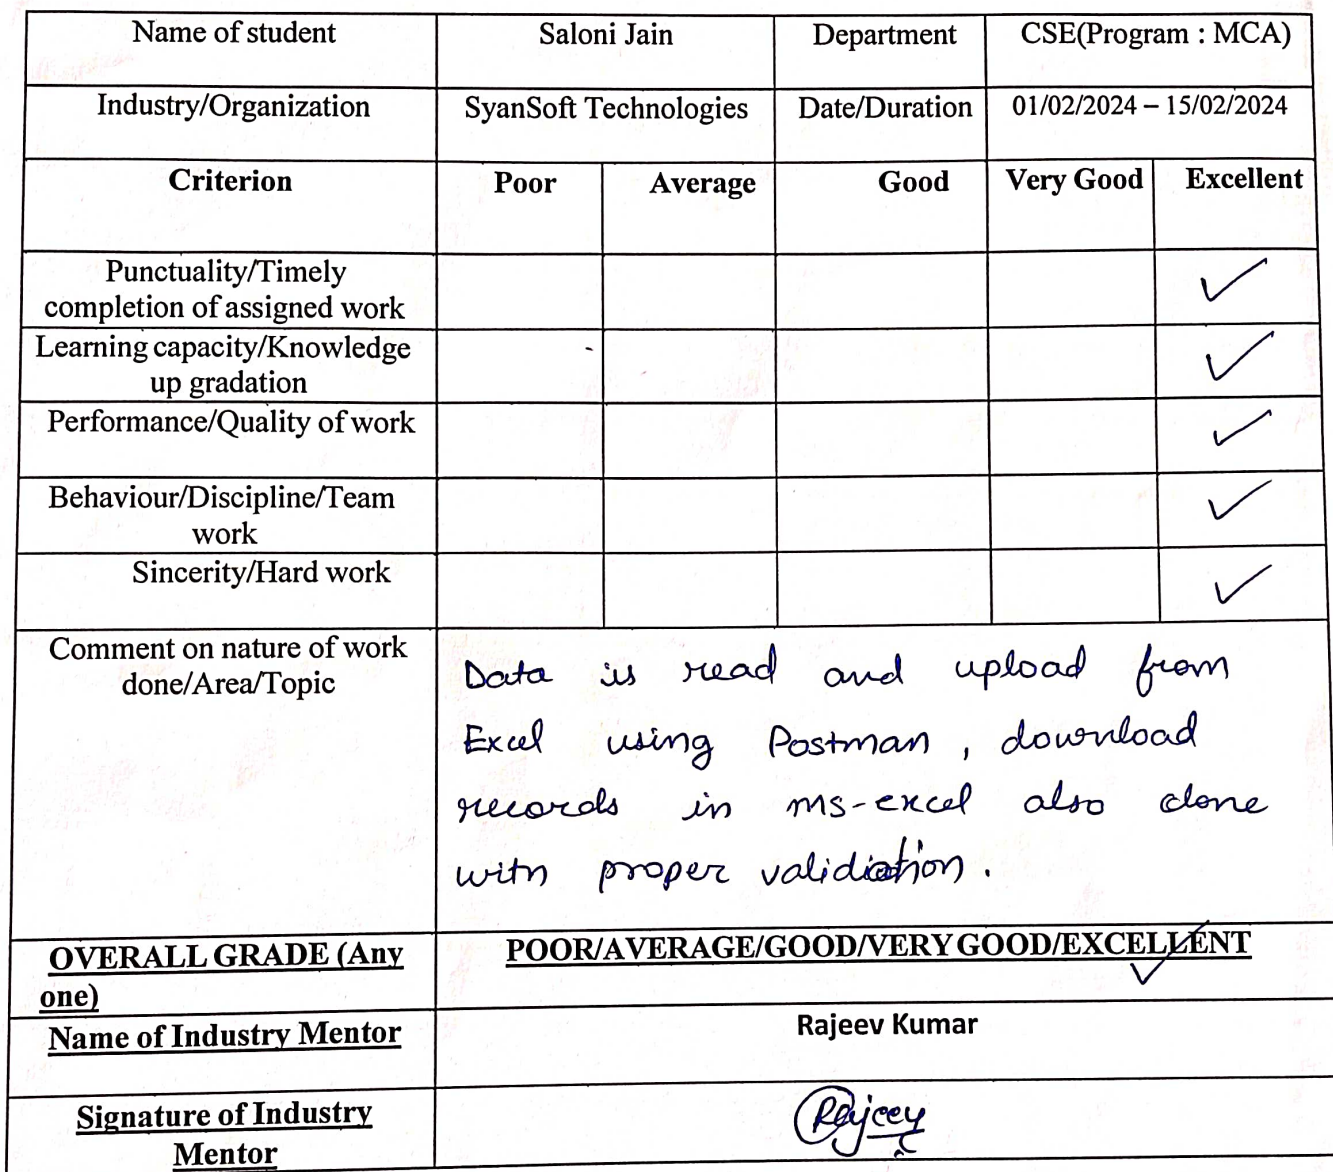 Name of student Saloni Jain Department CSE(Program : MCA)
Industry/Organization SyanSoft Technologies Date/Duration 01/02/2024 – 15/02/2024
Criterion Poor Average Good Very Good Excellent
Punctuality/Timely
completion of assigned work ✓
Learning capacity/Knowledge
up gradation ✓
Performance/Quality of work ✓
Behaviour/Discipline/Team
work ✓
Sincerity/Hard work ✓
Comment on nature of work
done/Area/Topic
Data is read and upload from
Excel using Postman , download
records in ms-excel also done
with proper validiation.
OVERALL GRADE (Any
one)
POOR/AVERAGE/GOOD/VERY GOOD/EXCELLENT ✓
Name of Industry Mentor Rajeev Kumar
Signature of Industry
Mentor
Rajeev